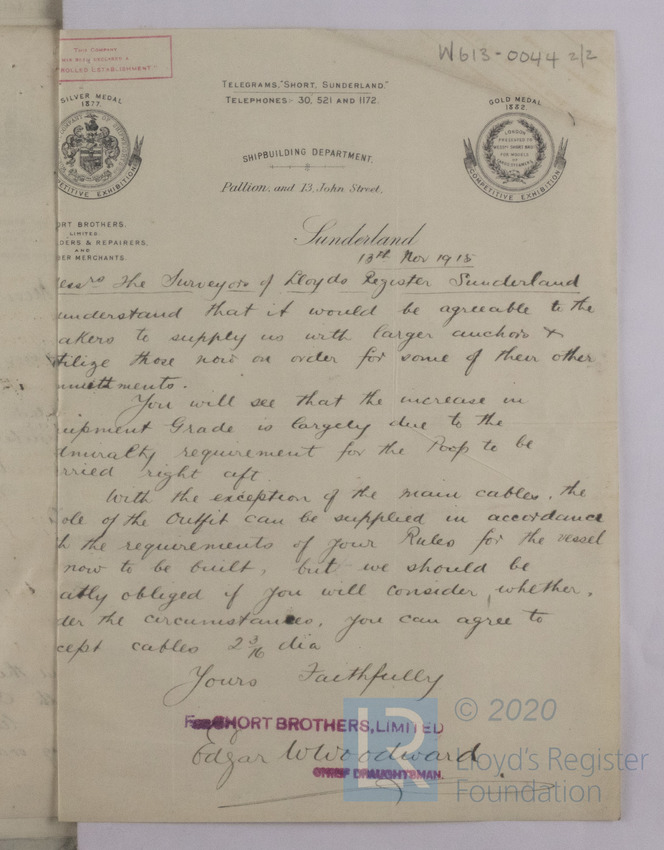 W613-0044 2/2
THIS COMPANY
HAS BEEN DECLARED A
TROLLED ESTABLISHMENT."
TELEGRAMS, "SHORT, SUNDERLAND."
TELEPHONES:- 30, 521 AND 1172.
SILVER MEDAL
1877.
COMPETITIVE EXHIBITION
GOLD MEDAL
1882.
LONDON
PRESENTED TO
FOR MODELS
OF
COMPETITIVE EXHIBITION
SHIPBUILDING DEPARTMENT.
Pallion, and 13, John Street,
ORT BROTHERS,
LIMITED.
LDERS & REPAIRERS,
AND
BER MERCHANTS.
Sunderland
13th Nov 1915
essrs The Surveyors of Lloyds Register Sunderland
understand that it would be agreeable to the
akers to supply us with larger anchors &
tilize those now on order for some of their other
mmittments.
You will see that the increase in
uipment Grade is largely due to the
dmiralty requirement for the Poop to be
rried right aft
With the exception of the main cables, the
ole of the Outfit can be supplied in accordance
h the requirements of your Rules for the vessel
now to be built, but we should be
atly obliged if you will consider, whether,
der the circumstances, you can agree to
cept cables 2 3/16 dia
Yours Faithfully
For SHORT BROTHERS, LIMITED
Edgar W Woodward
CHIEF DRAUGHTSMAN.
LR
© 2020
Lloyd's Register
Foundation